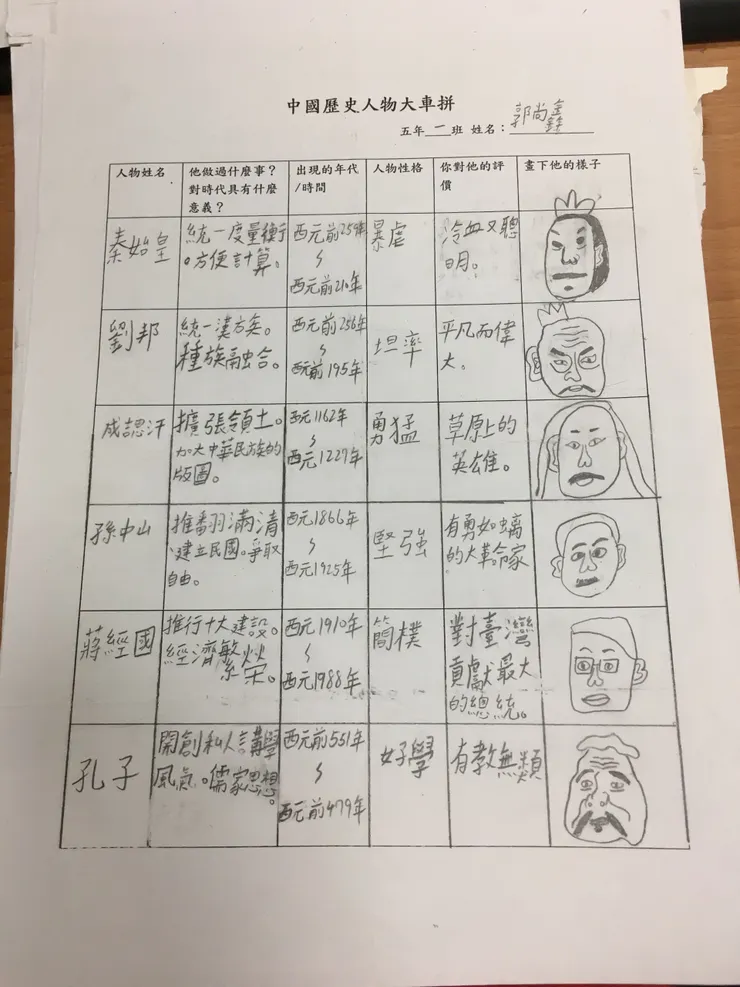 中國歷史人物大車拼
五年一班 姓名：郭尚鑫
人物姓名
他做過什麼事？
對時代具有什麼
意義？
出現的年代
/時間
人物性格
你對他的評
價
畫下他的樣子
秦始皇
統一度量衡
。方便計算。
西元前259年
~
西元前210年
暴虐
冷血又聰
明。
劉邦
統一漢方矣。
種族融合。
西元前256年
~
西元前195年
坦率
平凡而偉
大。
成認汗
擴張領土。
加大中華民族的
版圖。
西元1162年
~
西元1227年
勇猛
草原上的
英雄。
孫中山
推翻滿清
、建立民國。爭取
自由。
西元1866年
~
西元1925年
堅強
有勇如螭
的大革命家
蔣經國
推行十大建設。
經濟
西元1910年
~
西元1988年
簡樸
對臺灣
貢獻最大
的總統。
孔子
開創私人講學
風氣。儒家思想。
西元前551年
~
西元前479年
好學
有教無類